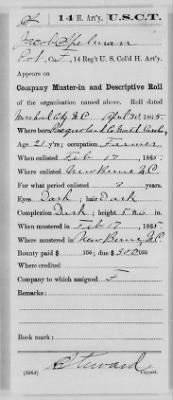 S | 14 H. Art'y. | U.S.C.T.
Jacob Spelman
Pvt, Co. F, 14 Reg't U. S. Col'd H. Art'y.
Appears on
Company Muster-in and Descriptive Roll
of the organization named above. Roll dated
Morehead City N.C. Apl 30, 1865.
Where born North Carol
Age 21 y'rs; occupation Farmer
When enlisted Feb 17, 1865.
Where enlisted New Berne N.C.
For what period enlisted 3 years.
Eyes Dark; hair Dark
Complexion Dark; height 5 ft. 6 in.
When mustered in Feb 17, 1865.
Where mustered in New Berne, N.C.
Bounty paid $ 100; due $ 300 100
Where credited
Company to which assigned F
Remarks:
Book mark:
Steward
(336d) Copyist.